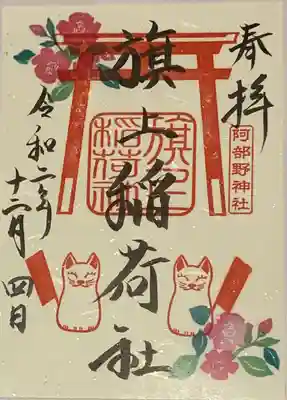 奉拝
阿部野神社
旗上稲荷社
旗上稲荷社
令和二年
十二月四日